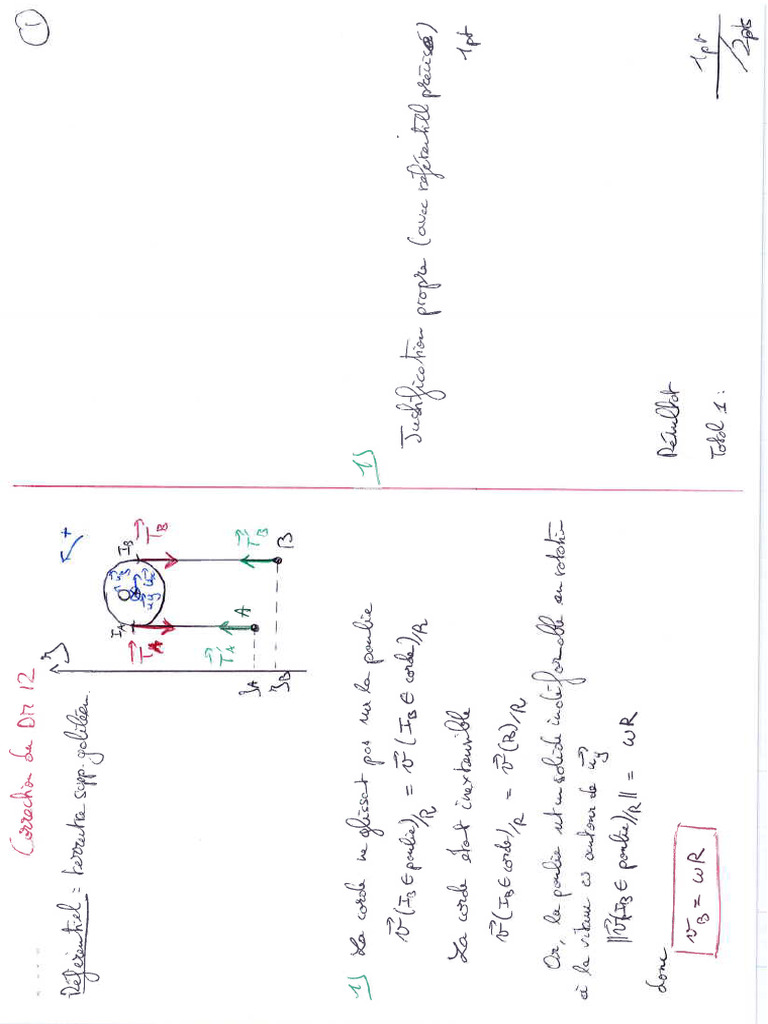 1
Correction du DM 12
Référentiel = terrestre supp. galiléen.
z
+
I_A
I_B
O
u_z
u_x
u_y
T_A
T_B
T'_A
T'_B
A
B
z_A
z_B
1) La corde ne glissant pas sur la poulie
v(I_B ∈ poulie)/R = v(I_B ∈ corde)/R
La corde étant inextensible
v(I_B ∈ corde)/R = v(B)/R
Or, la poulie est un solide indéformable en rotation
à la vitesse ω autour de u_y
||v(I_B ∈ poulie)/R|| = ωR
donc
v_B = ωR
1)
Justification propre (avec référentiel précisé)
1pt
Résultat
1pt
Total 1 :
/2pts